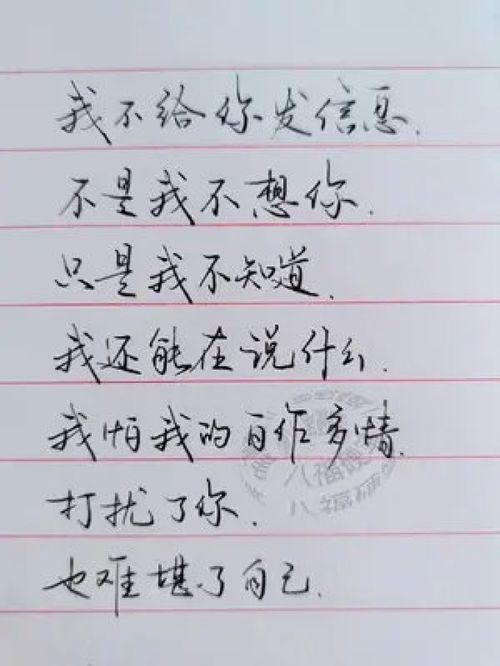 我不给你发信息.
不是我不想你.
只是我不知道.
我还能在说什么.
我怕我的自作多情.
打扰了你.
也难堪了自己.
八福硬
八福硬